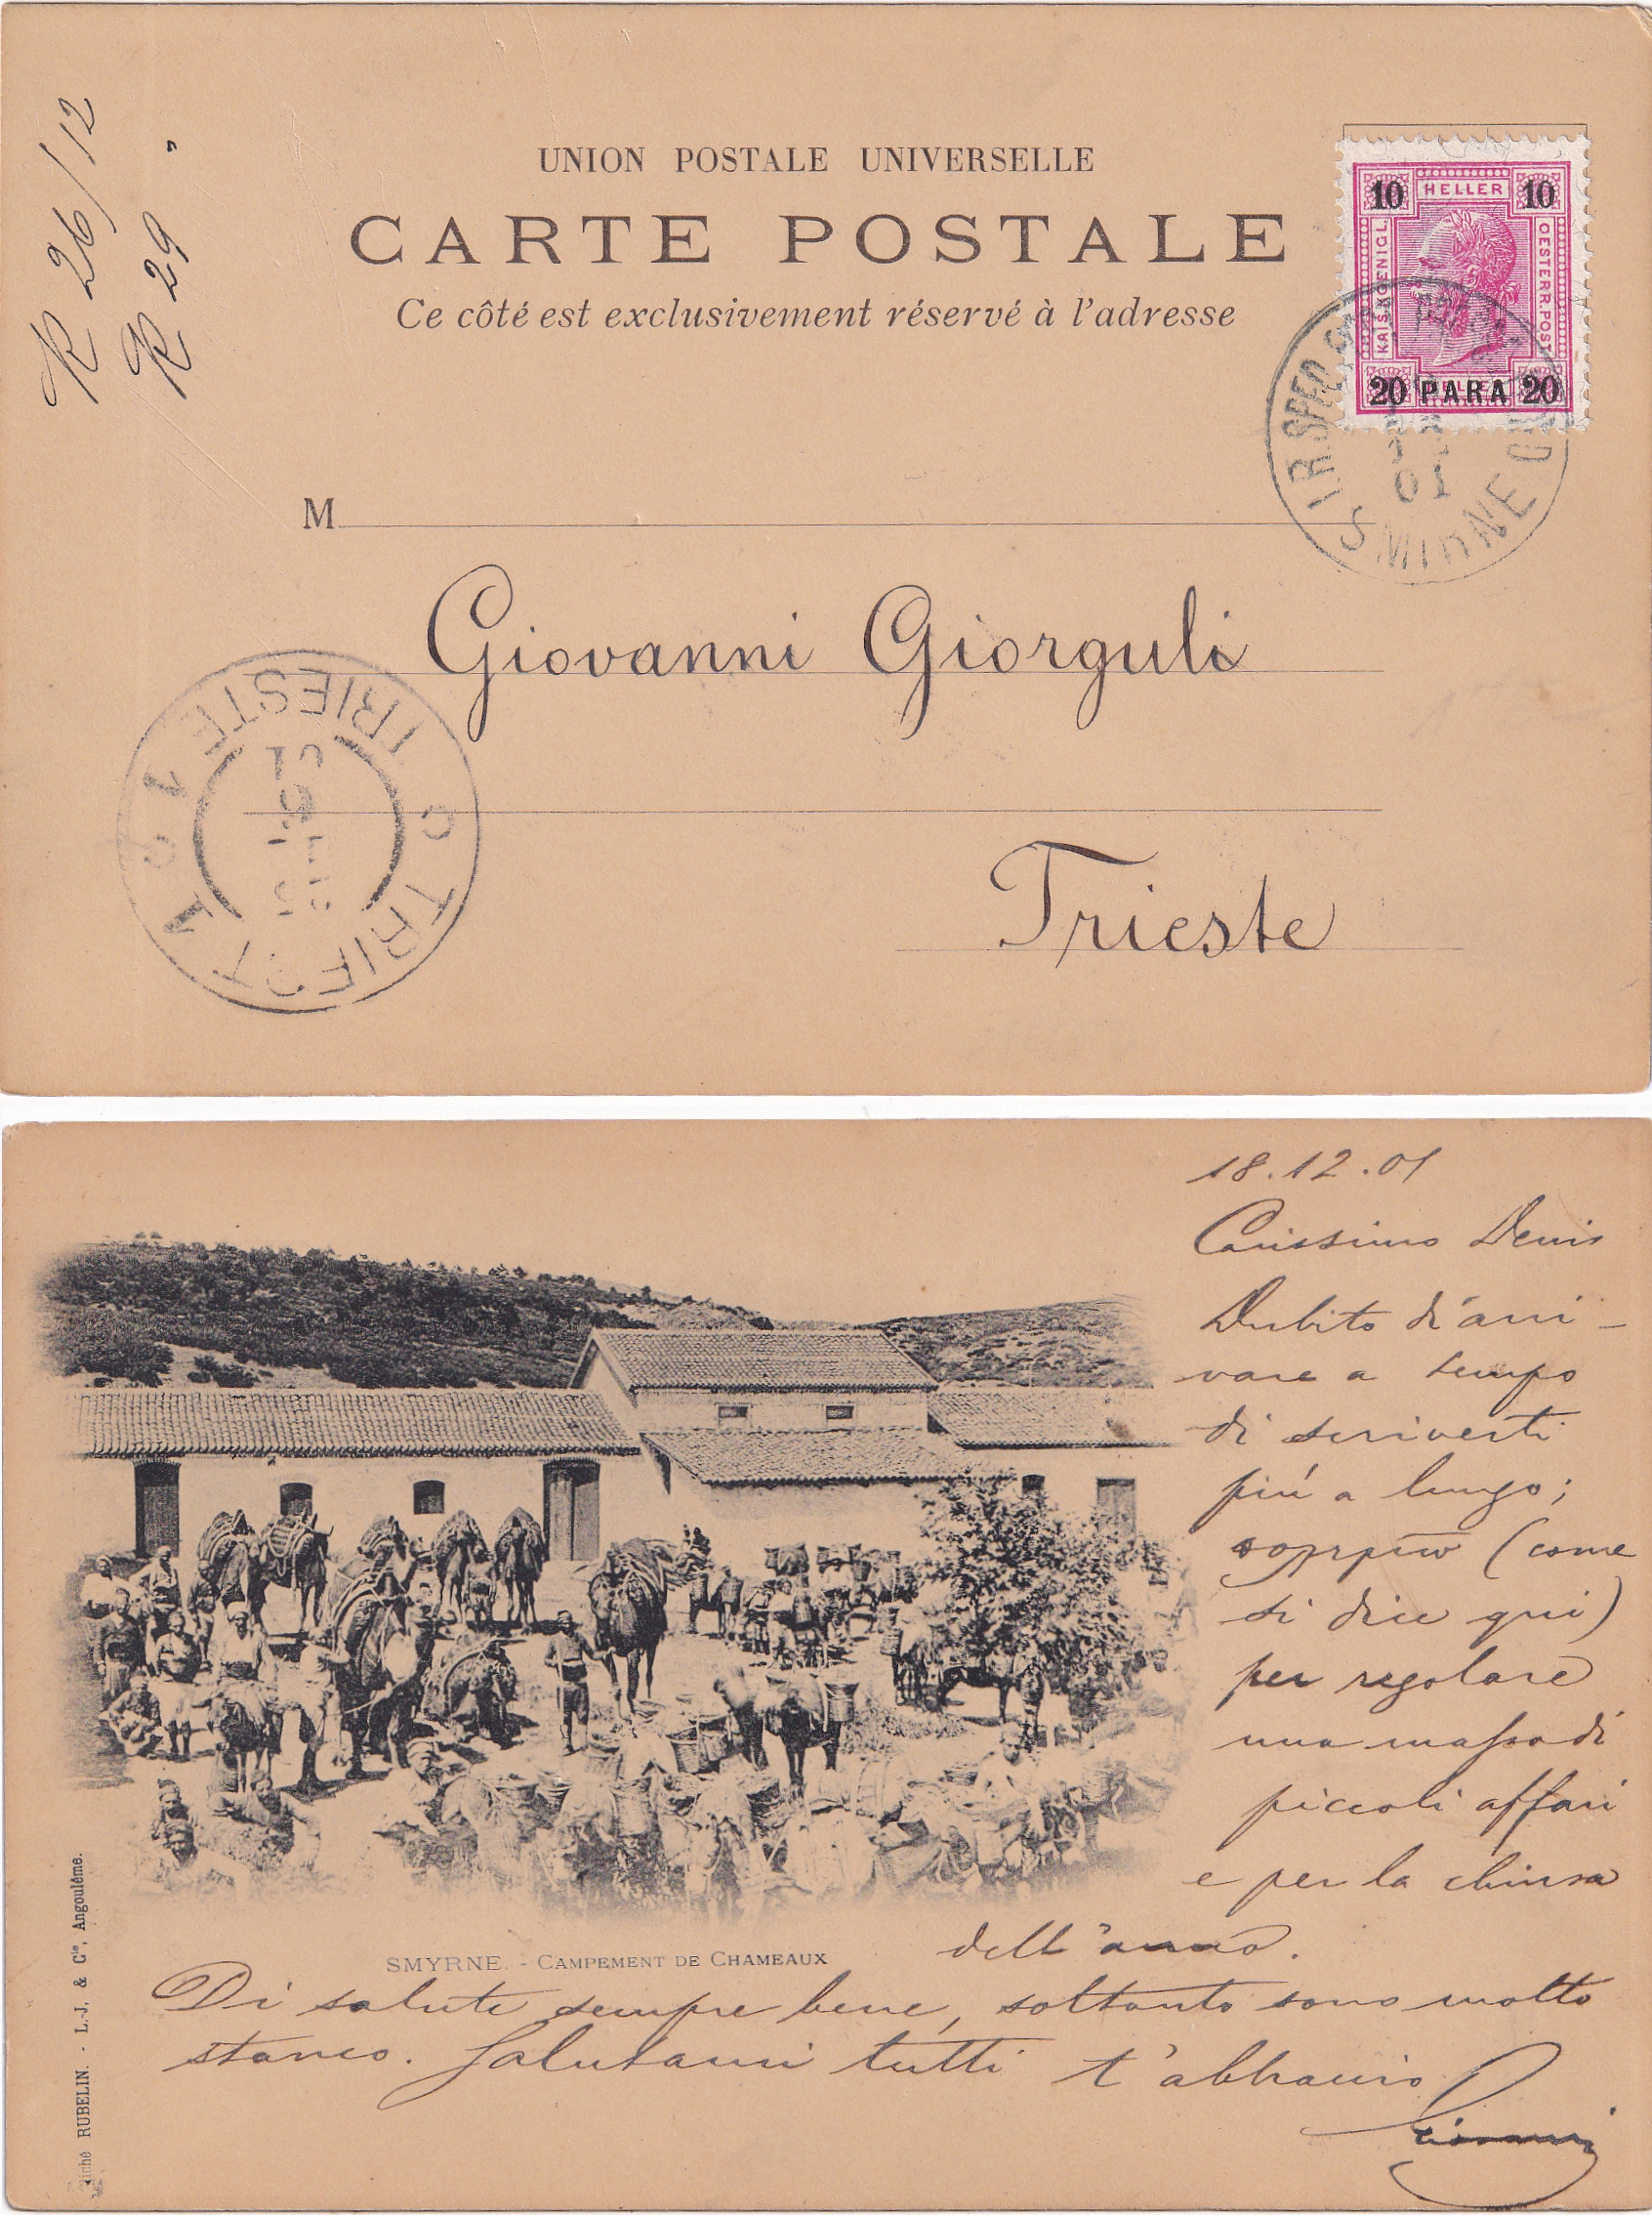 R 26/12
R 29 "
UNION POSTALE UNIVERSELLE
CARTE POSTALE
Ce côté est exclusivement réservé à l'adresse
10 HELLER 10
KAIS. KOENIGL.
OESTERR. POST
20 PARA 20
I.R. SPED.
01
SMIRNE
M
Giovanni Giorguli
TRIESTE
TRIEST
Trieste
18.12.01
Carissimo Denis
Dubito d'arri-
vare a tempo
di scriverti
più a lungo;
(come
si dice qui)
per regolare
una massa di
piccoli affari
e per la chiusa
dell'anno.
SMYRNE. - CAMPEMENT DE CHAMEAUX
Di salute sempre bene, soltanto sono molto
stanco. Salutami tutti t'abbraccio
Giovanni
Cliché RUBELIN. - L.J. & Cie, Angoulême.